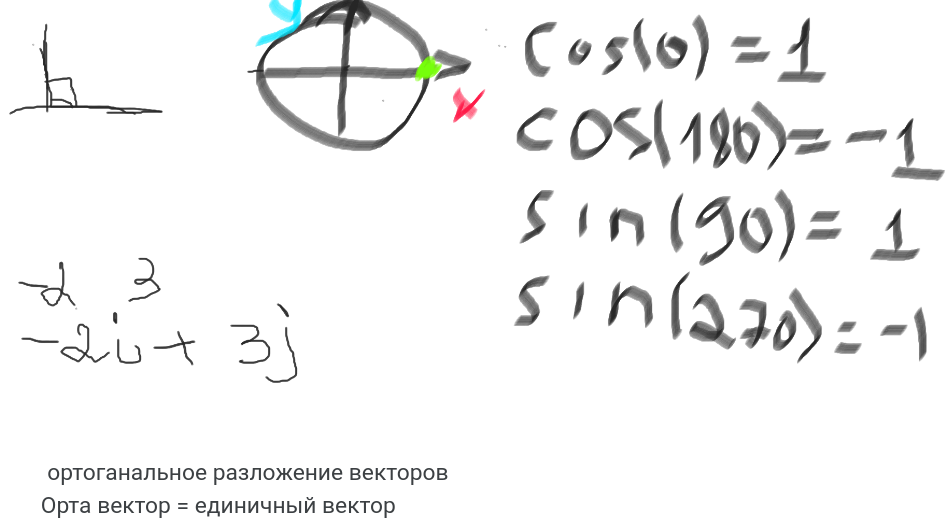 y
x
cos(0) = 1
cos(180) = -1
sin(90) = 1
sin(270) = -1
-2 3
-2i + 3j
ортоганальное разложение векторов
Орта вектор = единичный вектор